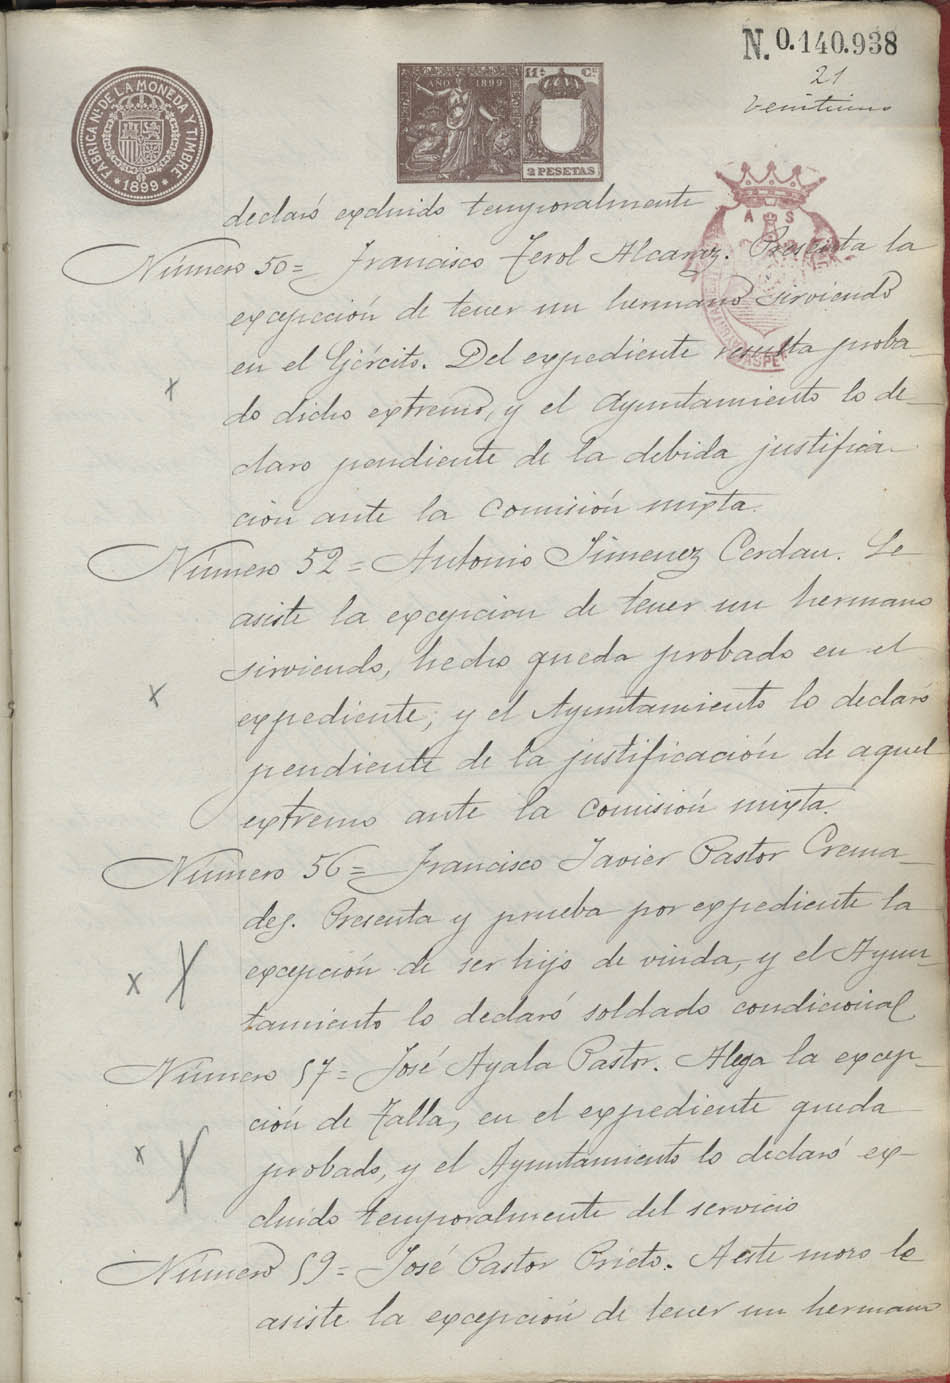 N. 0.140.938
21
Veintiuno
FABRICA Nl. DE LA MONEDA Y TIMBRE
* 1899 *
AÑO 1899
11ª Cª
2 PESETAS
A S
ASPE
declaró excluido temporalmente
Número 50 = Francisco Terol Alcaraz. Presenta la
excepción de tener un hermano sirviendo
en el Ejército. Del expediente resulta proba-
do dicho extremo, y el Ayuntamiento lo de-
claro pendiente de la debida justifica-
cion ante la Comisión mixta.
Número 52 = Antonio Jimenez Cerdan. Le
asiste la excepcion de tener un hermano
sirviendo, hecho queda probado en el
expediente; y el Ayuntamiento lo declaró
pendiente de la justificación de aquel
extremo ante la Comisión mixta.
Número 56 = Francisco Javier Pastor Crema-
des. Presenta y prueba por expediente la
excepción de ser hijo de viuda, y el Ayun-
tamiento lo declaró soldado condicional
Número 57 = José Ayala Pastor. Alega la excep-
ción de talla, en el expediente queda
probado, y el Ayuntamiento lo declaró ex-
cluido temporalmente del servicio
Número 59 = José Pastor Prieto. A este mozo le
asiste la excepción de tener un hermano